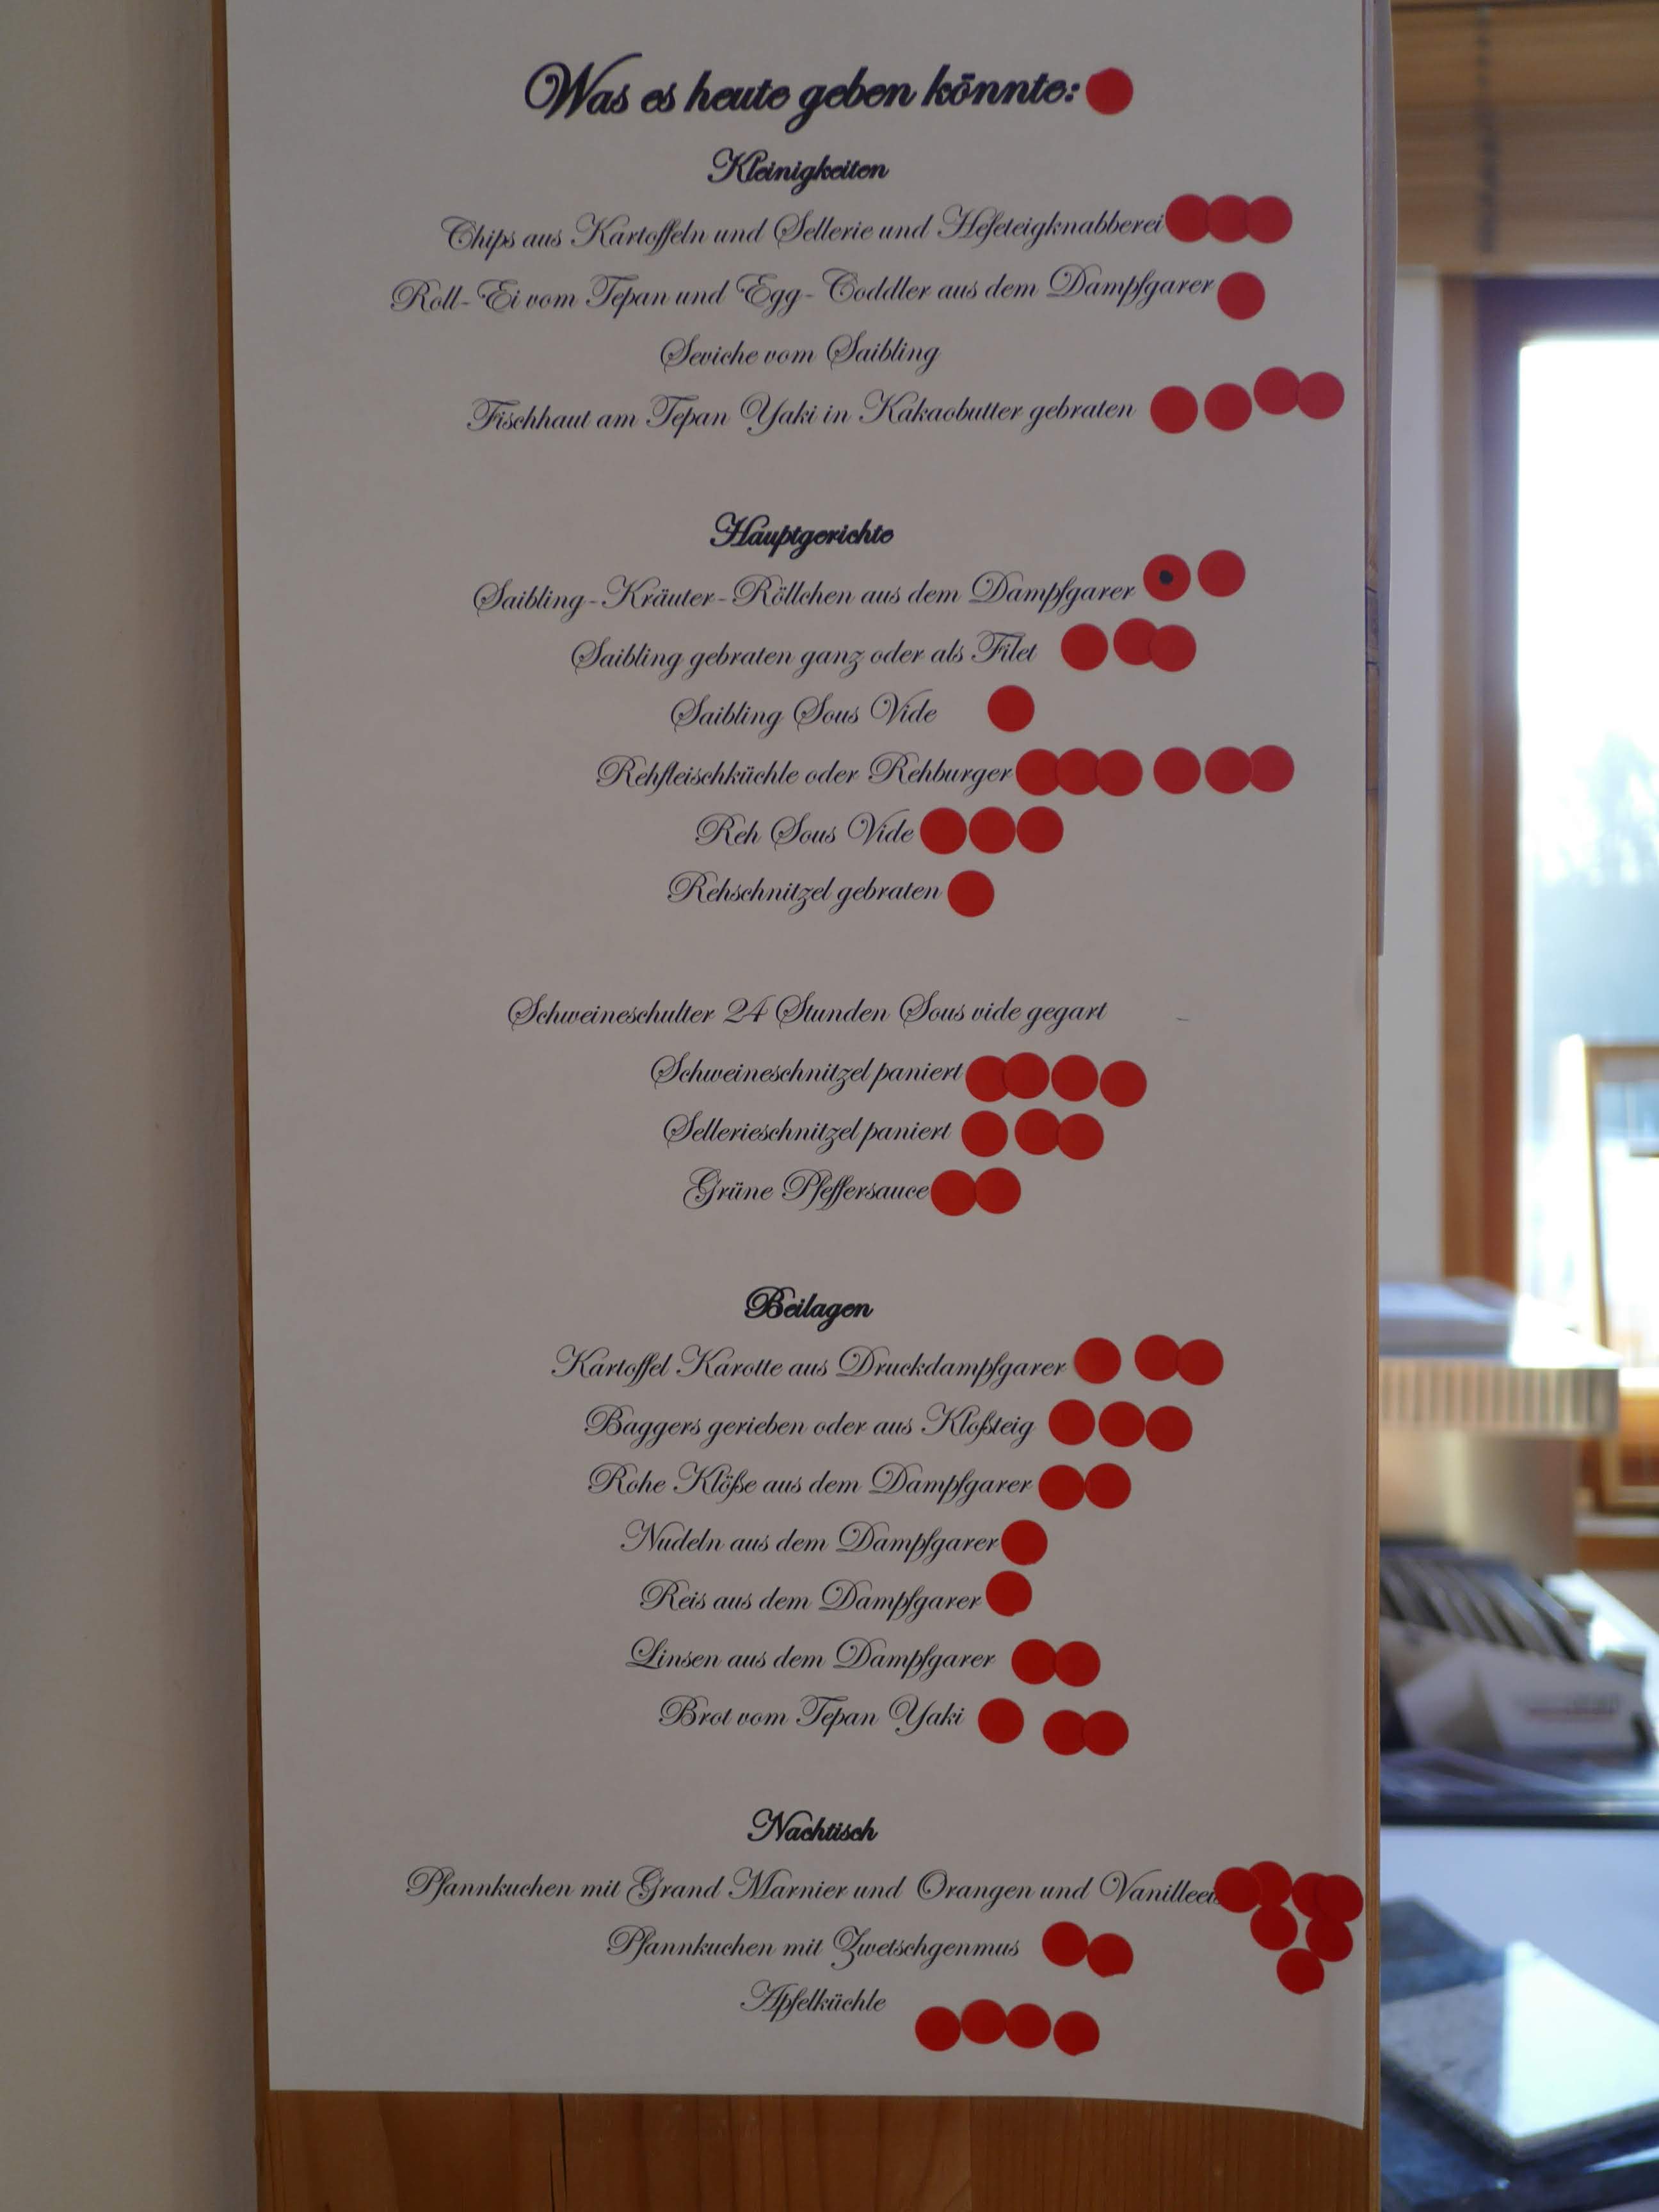 Was es heute geben könnte:
Kleinigkeiten
Chips aus Kartoffeln und Sellerie und Hefeteigknabberei
Roll-Ei vom Tepan und Egg-Coddler aus dem Dampfgarer
Seviche vom Saibling
Fischhaut am Tepan Yaki in Kakaobutter gebraten
Hauptgerichte
Saibling-Kräuter-Röllchen aus dem Dampfgarer
Saibling gebraten ganz oder als Filet
Saibling Sous Vide
Rehfleischküchle oder Rehburger
Reh Sous Vide
Rehschnitzel gebraten
Schweineschulter 24 Stunden Sous vide gegart
Schweineschnitzel paniert
Sellerieschnitzel paniert
Grüne Pfeffersauce
Beilagen
Kartoffel Karotte aus Druckdampfgarer
Baggers gerieben oder aus Kloßteig
Rohe Klöße aus dem Dampfgarer
Nudeln aus dem Dampfgarer
Reis aus dem Dampfgarer
Linsen aus dem Dampfgarer
Brot vom Tepan Yaki
Nachtisch
Pfannkuchen mit Grand Marnier und Orangen und Vanilleeis
Pfannkuchen mit Zwetschgenmus
Apfelküchle